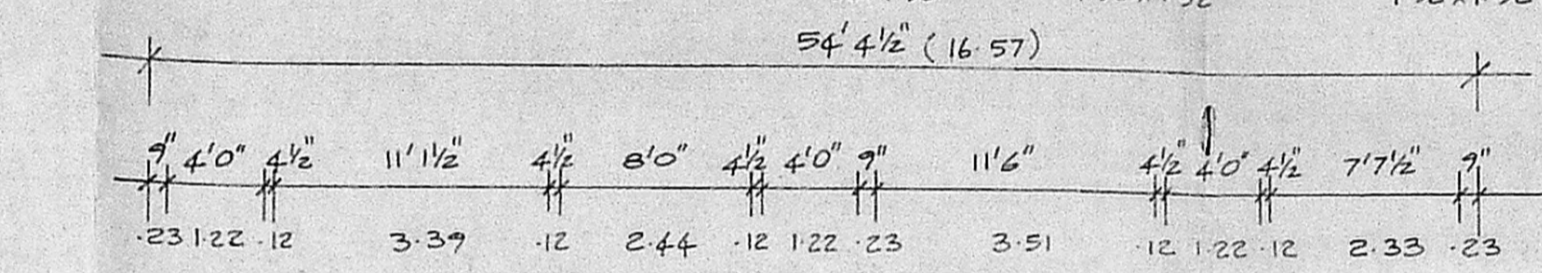 54' 4½" (16·57)
9" 4'0" 4½" 11' 1½" 4½" 8'0" 4½" 4'0" 9" 11'6" 4½" 4'0" 4½" 7'7½" 9"
·23 1·22 ·12 3·39 ·12 2·44 ·12 1·22 ·23 3·51 ·12 1·22 ·12 2·33 ·23